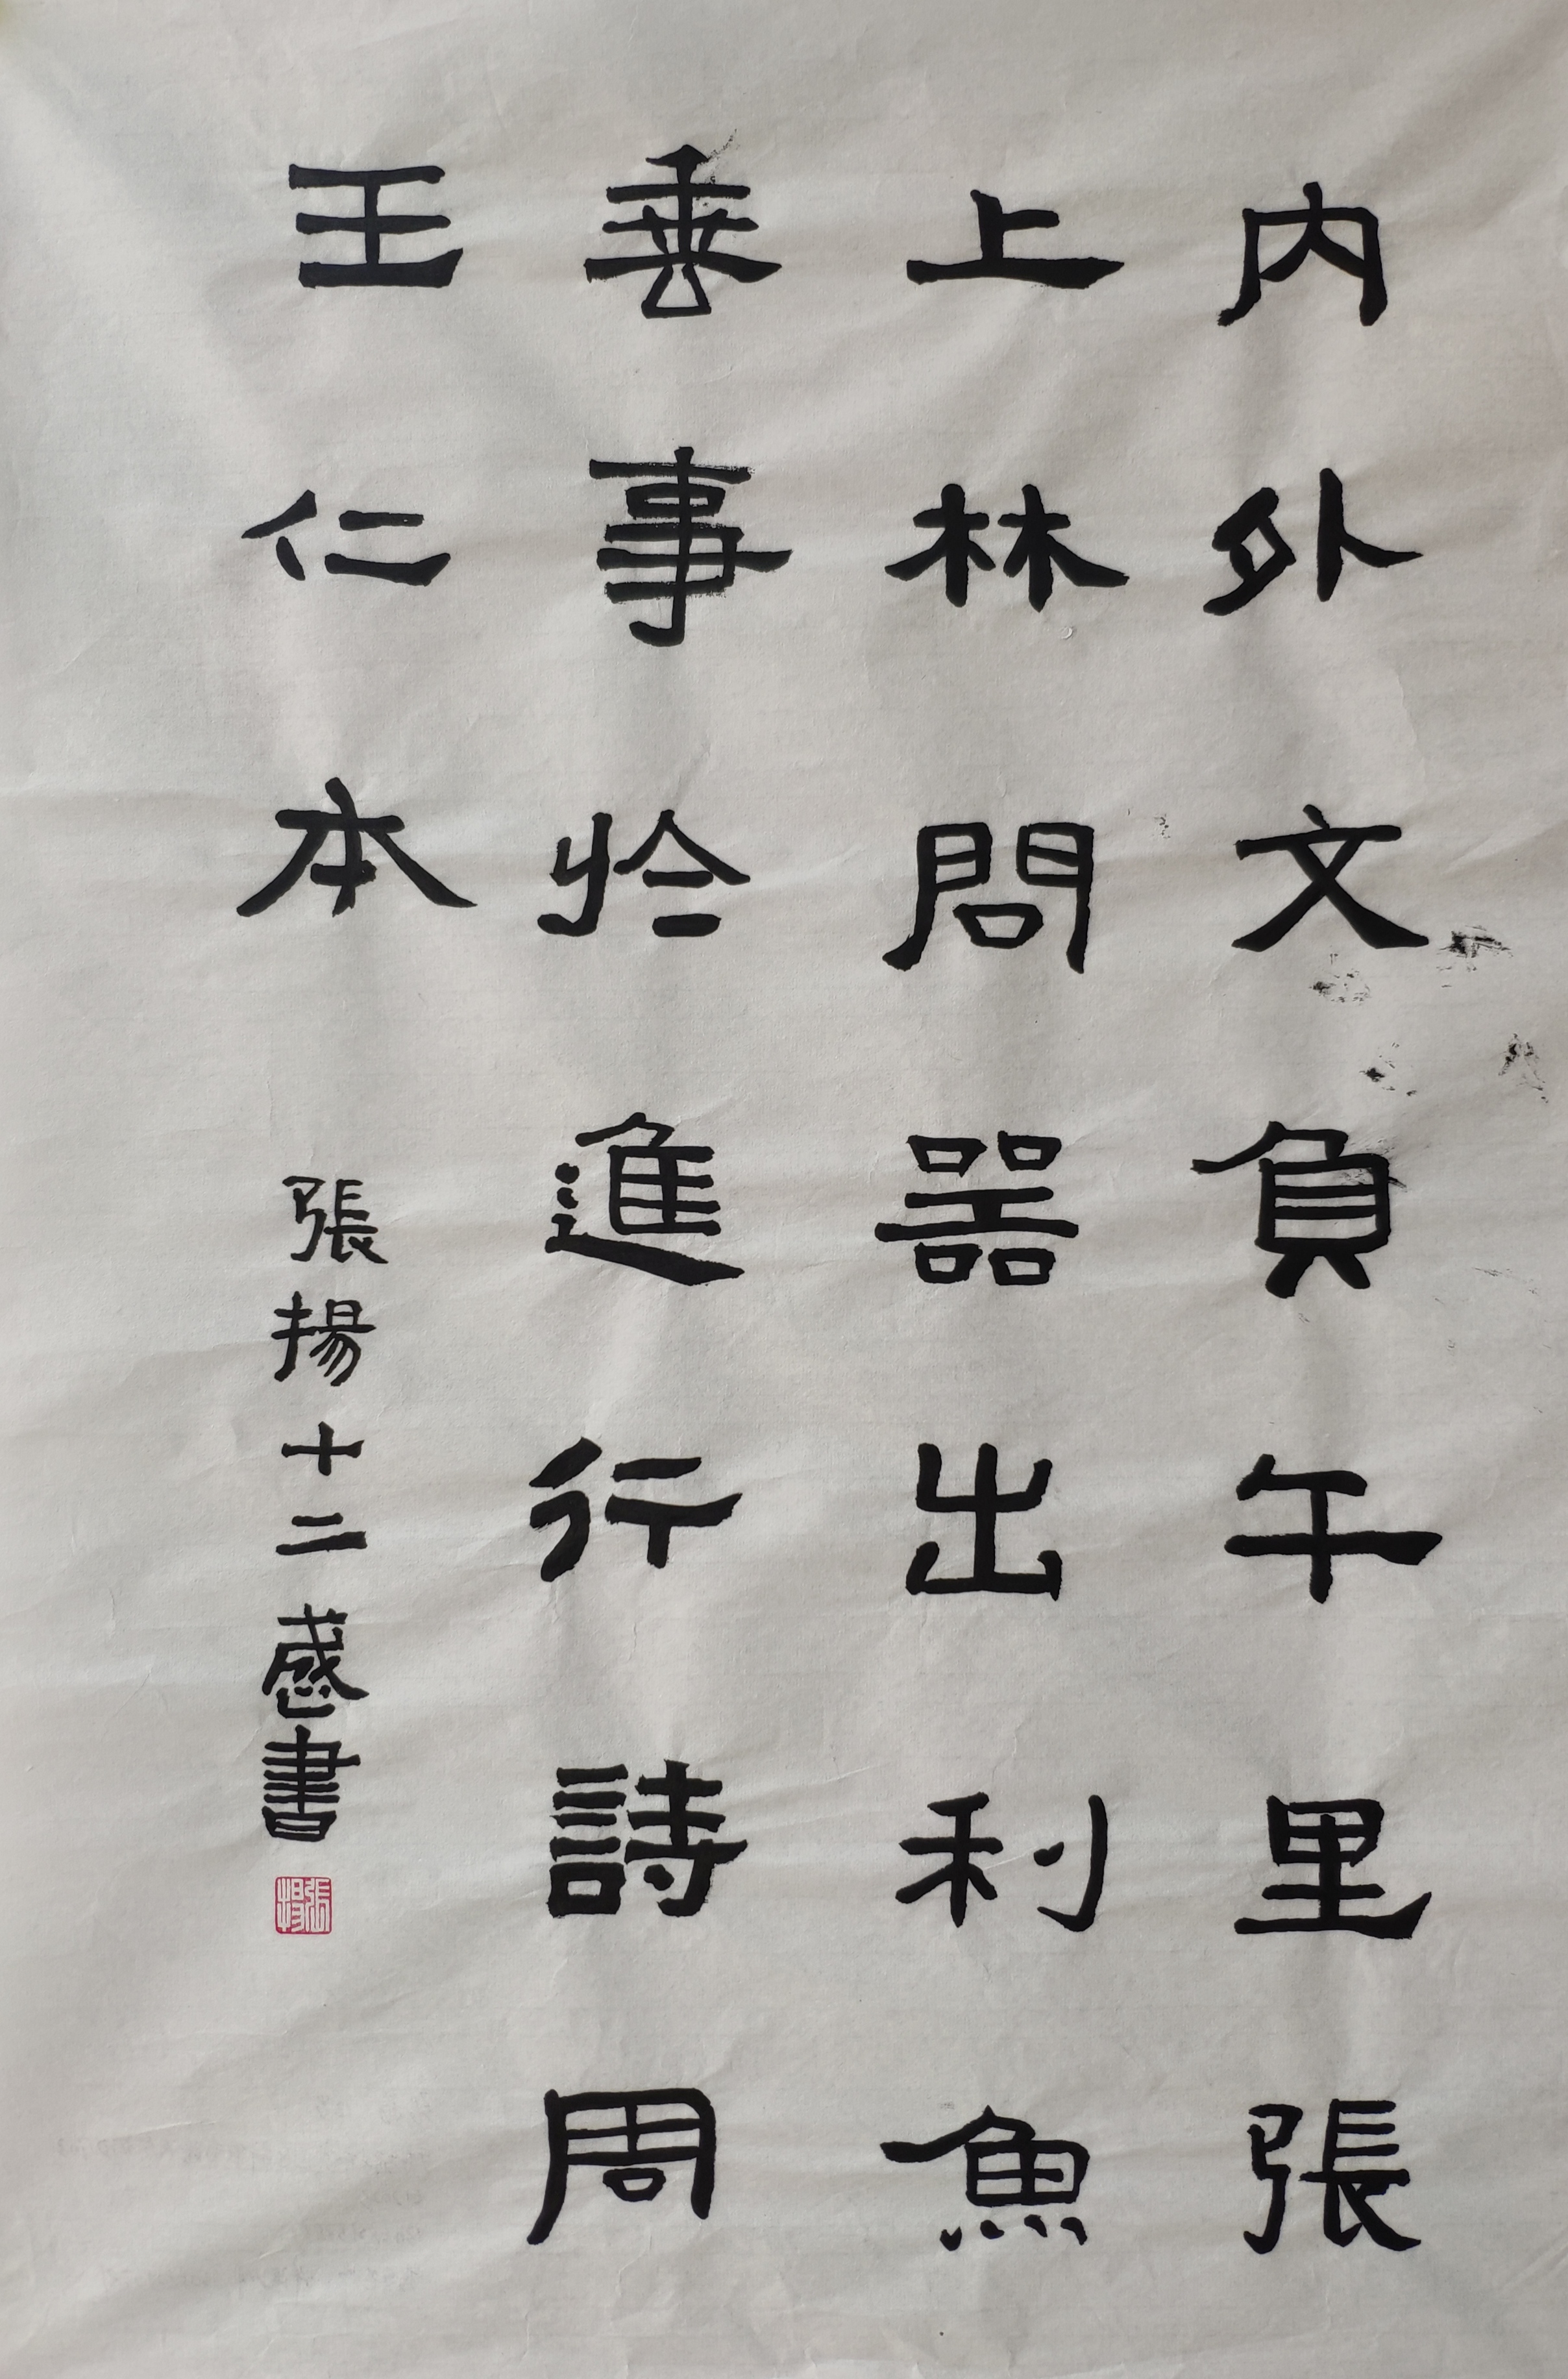 内外文負午里張
上林問器出利魚
垂事於進行詩周
王仁本
張揚十二感書
張揚